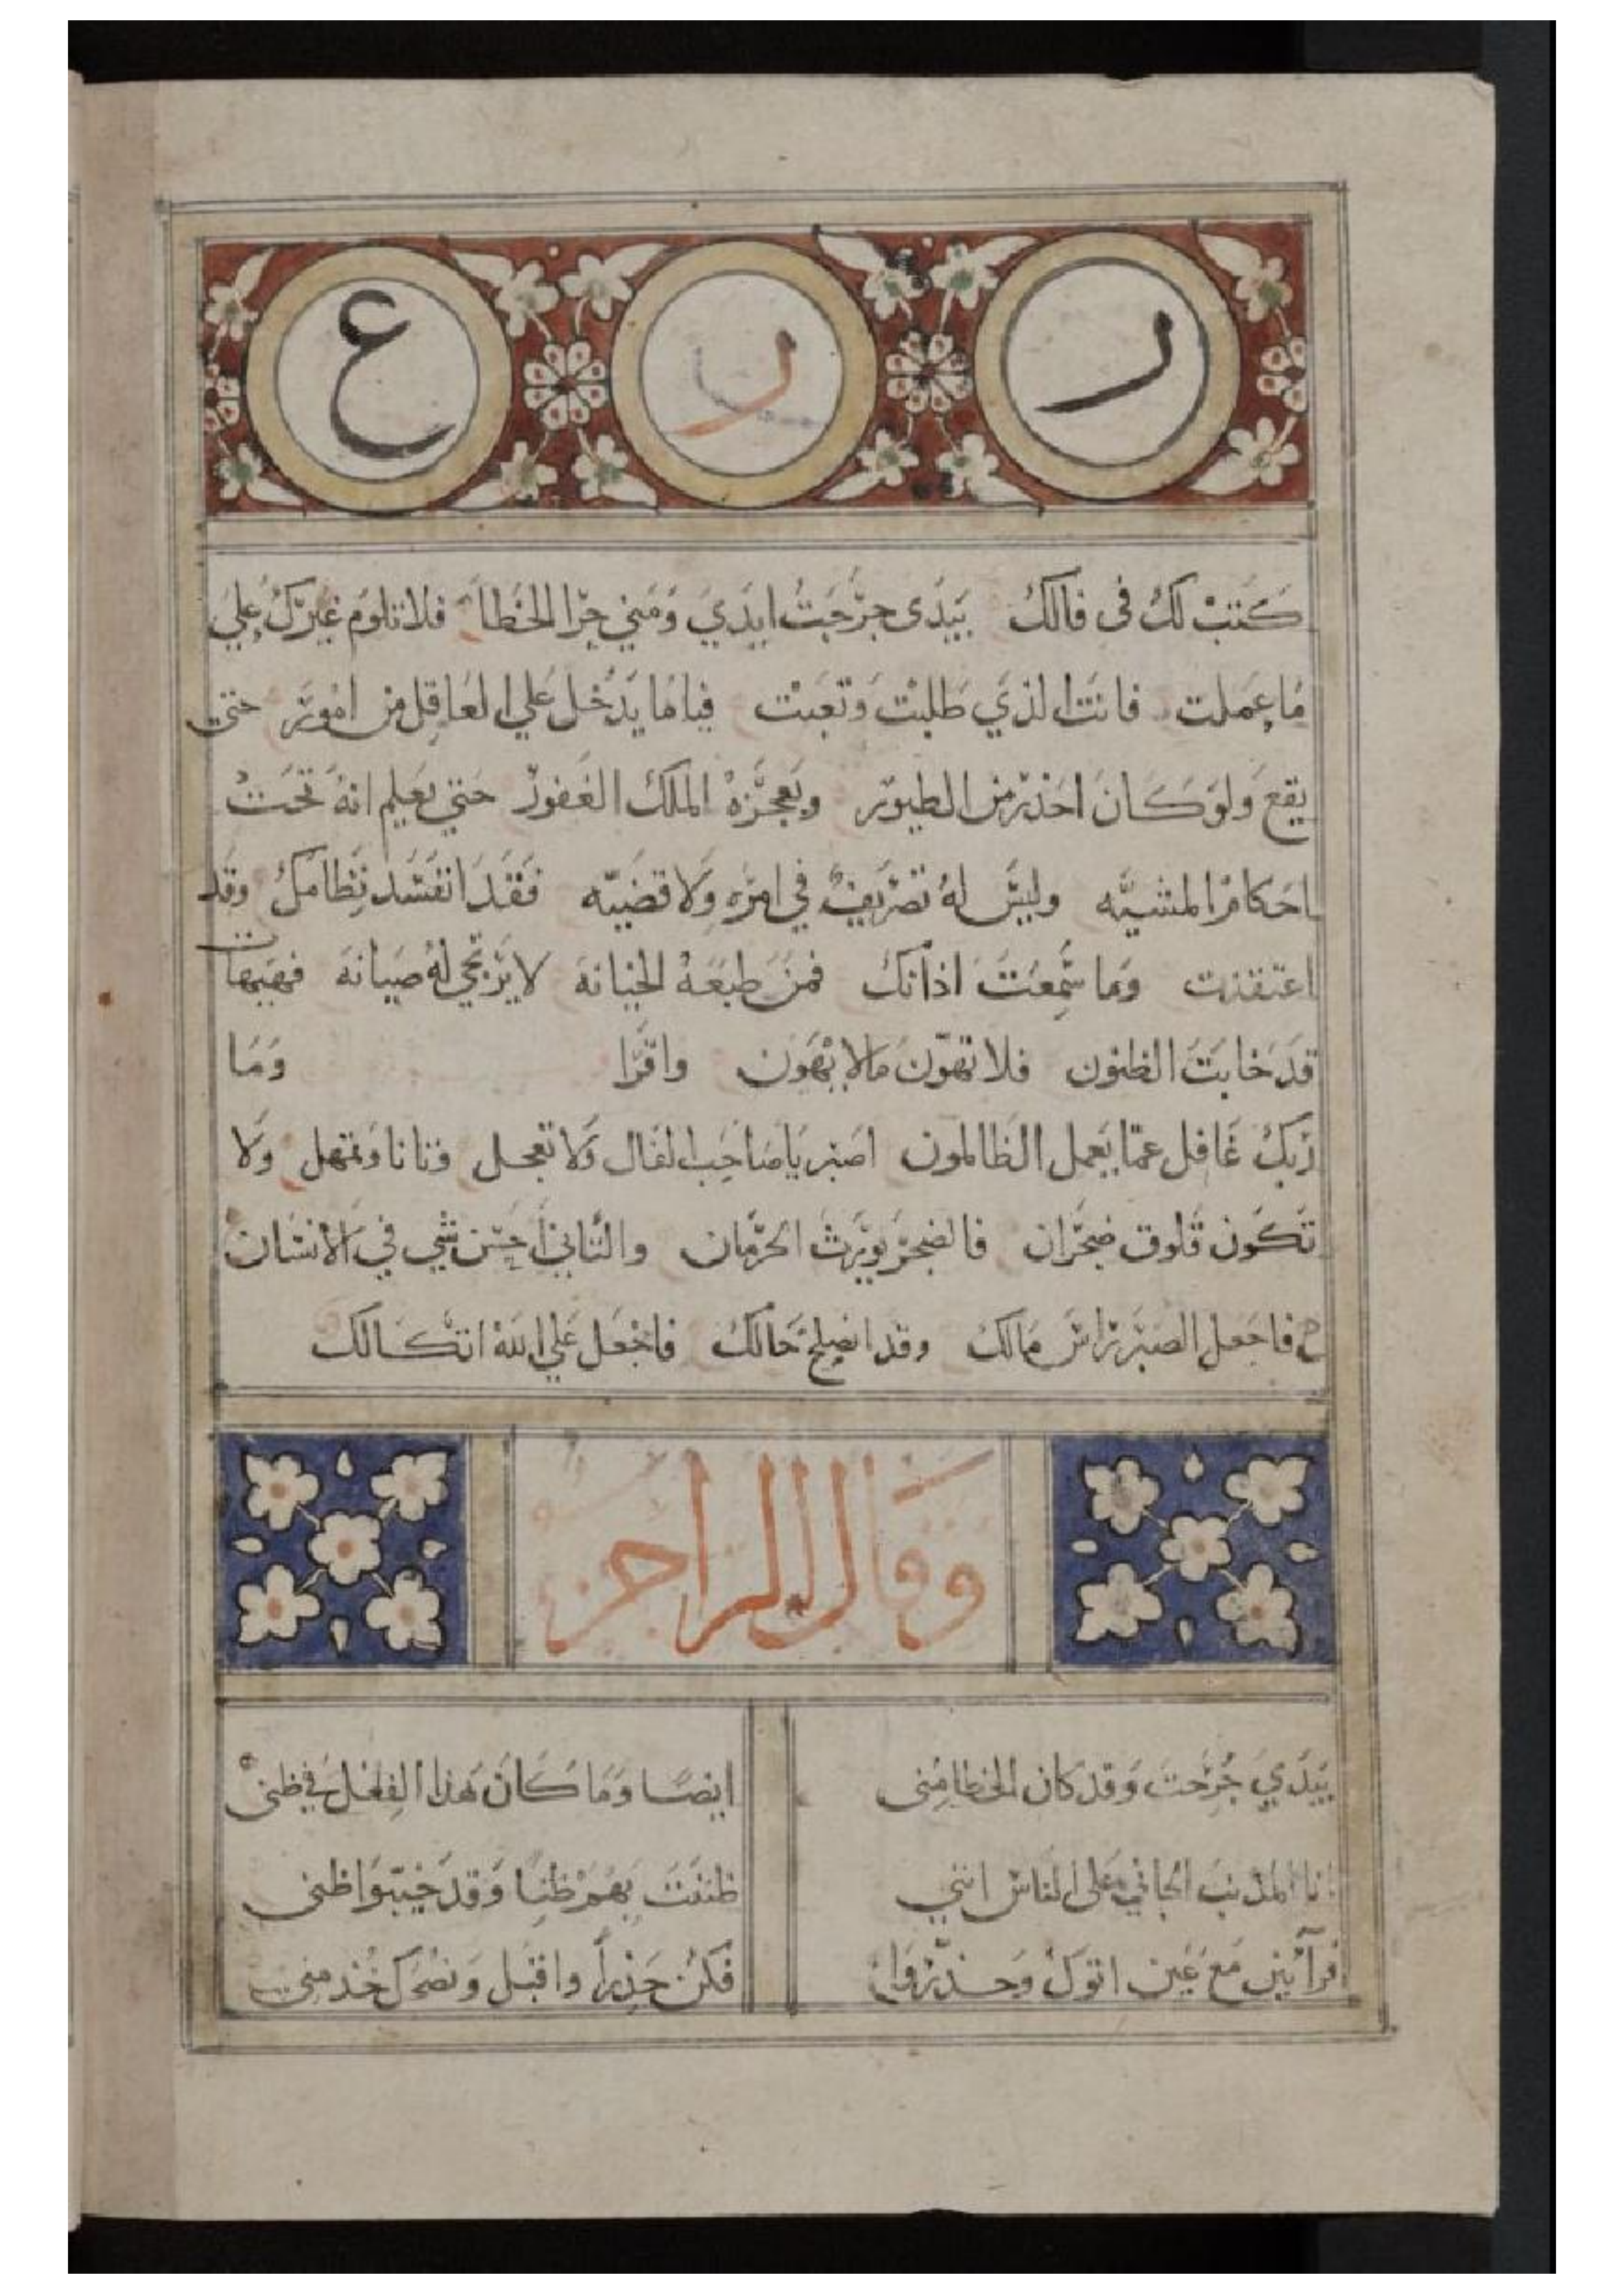 ر ر ع
كتبت لك في فالك بيدى جرحت ايدي ومني جرا الخطا فلا تلوم غيرك علي
ما عملت فانت الذي طلبت وتعبت فياما يدخل علي العاقل من امور حتى
يقع ولو كان احذر من الطيور ويعجزه الملك الغفور حتي يعلم انه تحت
احكام المشيه وليس له تصريف في امره ولا قضيه فقد انفسد نظامك وقد
اعتقدت وما سمعت اذانك فمن طبعه الخيانه لا يرتجي له صيانه فهيهات
قد خابت الظنون فلا تهون ما لا يهون واقرا وما
ربك غافل عما يعمل الظالمون اصبر يا صاحب الفال ولا تعجل وتانا وتمهل ولا
تكون قلوق ضجران فالضجر يورث الحرمان والتاني احسن شي في الانسان
فاجعل الصبر راس مالك وقد انصلح حالك فاجعل علي الله اتكالك
وقال الراجز
بيدي جرحت وقد كان الخطا مني ايضا وما كان هذا الفعل في ظني
انا المذنب الجاني على الناس انني ظننت بهم ظنا وقد خيبوا ظني
فرآيين مع عين اتوك وحذروا فكن حذرا واقبل ونصحك خذ مني